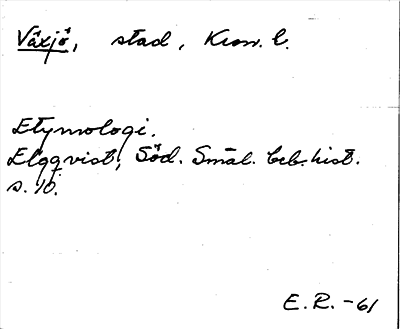 Växjö, stad, Kron. l.
Etymologi.
Elgqvist, Söd. Smål. beb. hist.
s. 10.
E. R. -61